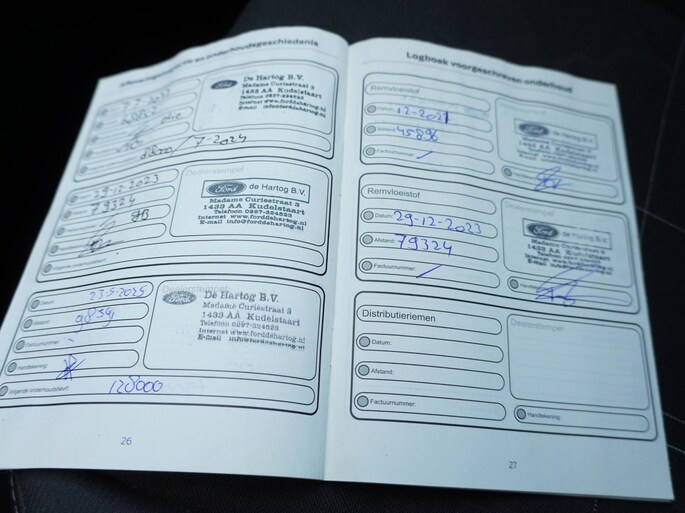 en onderhoudsgeschiedenis
Ford
De Hartog B.V.
Madame Curiestraat 3
1433 AA Kudelstaart
Telefoon 0297-324523
Internet www.forddehartog.nl
E-mail info@fordhartog.nl
7-2024
Dealerstempel:
29-12-2023
79324
Ford
de Hartog B.V.
Madame Curiestraat 3
1433 AA Kudelstaart
Telefoon 0297-324523
Internet www.forddehartog.nl
E-mail info@fordhartog.nl
Volgende onderhoudsbeurt:
Datum: 23-5-2025
Afstand:
Factuurnummer: -
Handtekening:
Volgende onderhoudsbeurt: 128000
Dealerstempel:
Ford
De Hartog B.V.
Madame Curiestraat 3
1433 AA Kudelstaart
Telefoon 0297-324523
Internet www.forddehartog.nl
26
Logboek voorgeschreven onderhoud
Remvloeistof
12-2021
45896
Factuurnummer:
Ford
de Hartog B.V.
Remvloeistof
Datum: 29-12-2023
Afstand: 79324
Factuurnummer:
Ford
Madame Curiestraat 3
1433 AA Kudelstaart
Handtekening:
Distributieriemen
Datum:
Afstand:
Factuurnummer:
Dealerstempel:
Handtekening:
27